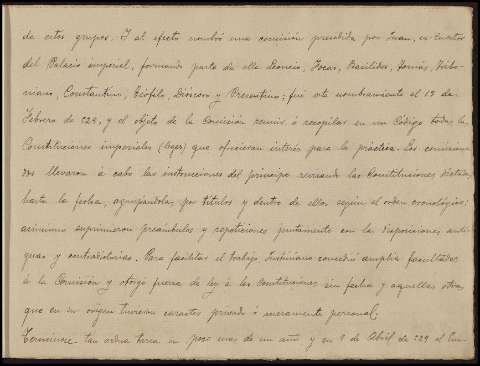 de estos grupos. Y al efecto nombró una comisión presidida por Juan, ex-Cuestor
del Palacio imperial, formando parte de ella Leoncio, Focas, Basílides, Tomás, Tribo-
niano, Constantino, Teófilo, Dióscoro y Presentino; fué este nombramiento el 13 de
Febrero de 528, y el objeto de la Comisión reunir ó recopilar en un Código todas las
Constituciones imperiales (leges) que ofrecieran interés para la práctica. Los comisiona-
dos llevaron á cabo las instrucciones del príncipe revisando las Constituciones dictadas
hasta la fecha, agrupándolas por títulos y dentro de ellos según el orden cronológico;
asimismo suprimieron preámbulos y repeticiones juntamente con las disposiciones anti-
guas y contradictorias. Para facilitar el trabajo Justiniano concedió amplias facultades
á la Comisión y otorgó fuerza de ley á las Constituciones sin fecha y aquellas otras
que en su origen tuvieron caracter privado ó meramente personal.
Terminose tan ardua tarea en poco mas de un año y en 7 de Abril de 529 el Em-